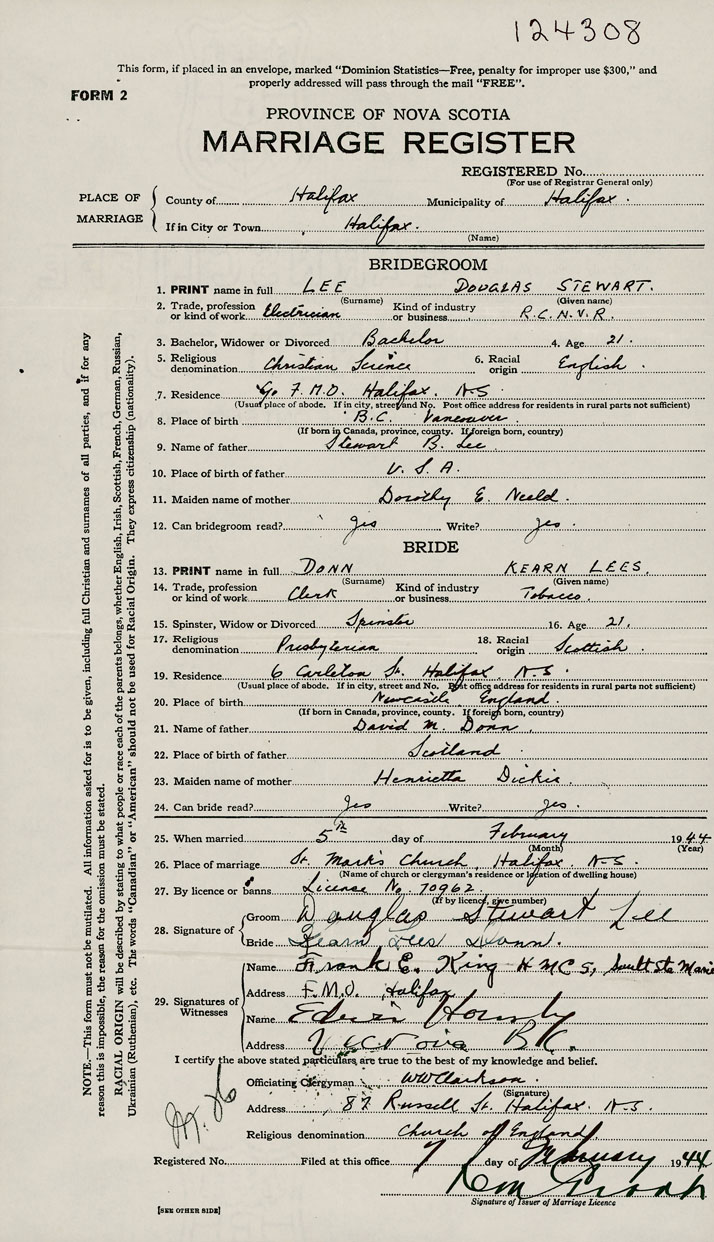 124308
This form, if placed in an envelope, marked "Dominion Statistics—Free, penalty for improper use $300," and
properly addressed will pass through the mail "FREE".
FORM 2
PROVINCE OF NOVA SCOTIA
MARRIAGE REGISTER
REGISTERED No.
(For use of Registrar General only)
PLACE OF MARRIAGE
County of Halifax Municipality of Halifax.
If in City or Town Halifax.
(Name)
BRIDEGROOM
1. PRINT name in full LEE DOUGLAS STEWART.
(Surname) (Given name)
2. Trade, profession or kind of work Electrician Kind of industry or business R.C.N.V.R.
3. Bachelor, Widower or Divorced Bachelor 4. Age 21.
5. Religious denomination Christian Science 6. Racial origin English.
7. Residence F.M.O. Halifax. N-S
(Usual place of abode. If in city, street and No. Post office address for residents in rural parts not sufficient)
8. Place of birth B.C. Vancouver.
(If born in Canada, province, county. If foreign born, country)
9. Name of father Stewart B. Lee
10. Place of birth of father U.S.A.
11. Maiden name of mother Dorothy E. Neeld.
12. Can bridegroom read? yes Write? yes.
BRIDE
13. PRINT name in full DONN KEARN LEES.
(Surname) (Given name)
14. Trade, profession or kind of work Clerk Kind of industry or business Tobacco.
15. Spinster, Widow or Divorced Spinster 16. Age 21.
17. Religious denomination Presbyterian 18. Racial origin Scottish.
19. Residence 6 Carleton St. Halifax. N-S.
(Usual place of abode. If in city, street and No. Post office address for residents in rural parts not sufficient)
20. Place of birth Newcastle, England.
(If born in Canada, province, county. If foreign born, country)
21. Name of father David M. Donn.
22. Place of birth of father Scotland.
23. Maiden name of mother Henrietta Dickie.
24. Can bride read? yes Write? yes.
25. When married 5th day of February 1944
(Month) (Year)
26. Place of marriage St. Mark's Church, Halifax. N-S.
(Name of church or clergyman's residence or location of dwelling house)
27. By licence or banns License No. 70962
(If by licence, give number)
28. Signature of
Groom Douglas Stewart Lee
Bride Kearn Lees Donn.
29. Signatures of Witnesses
Name Frank E. King HMCS, Sault Ste Marie
Address F.M.O. Halifax
Name Edwin
Address B.C.
I certify the above stated particulars are true to the best of my knowledge and belief.
Officiating Clergyman WWClarkson.
(Signature)
Address 87 Russell St. Halifax. N-S.
Religious denomination Church of England
Registered No. Filed at this office 7 day of February 1944
Signature of Issuer of Marriage Licence
[SEE OTHER SIDE]
NOTE.—This form must not be mutilated. All information asked for is to be given, including full Christian and surnames of all parties, and if for any
reason this is impossible, the reason for the omission must be stated.
RACIAL ORIGIN will be described by stating to what people or race each of the parents belongs, whether English, Irish, Scottish, French, German, Russian,
Ukrainian (Ruthenian), etc. The words "Canadian" or "American" should not be used for Racial Origin. They express citizenship (nationality).